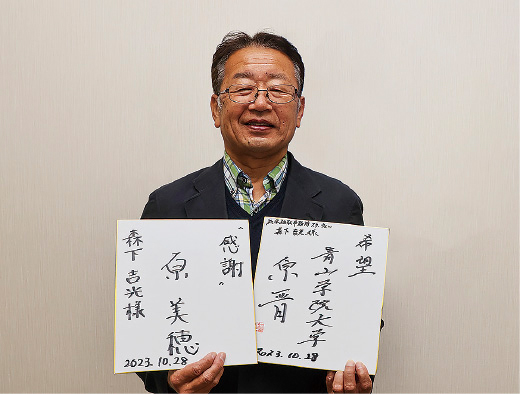 希望
青山学院大学
原晋
森下 吉光 様
2023.10.28
"感謝"
原 美穂
森下 吉光様
2023.10.28